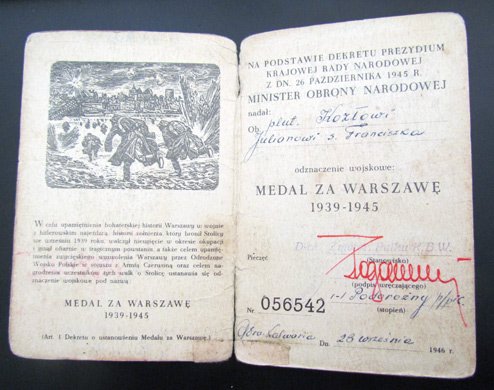 W celu upamiętnienia bohaterskiej historii Warszawy w wojnie
z hitlerowskim najeźdźcą, historii żołnierza, który bronił Stolicy
we wrześniu 1939 roku, walczył nieugięcie w okresie okupacji
i gnał ofiarnie w tragicznym powstaniu, a także celem upamiętnienia
zwycięskiego uwolnienia Warszawy przez Odrodzone
Wojsko Polskie w sojuszu z Armią Czerwoną oraz celem nagrodzenia
uczestników tych walk o Stolicę ustanawia się
odznaczenie wojskowe pod nazwą
MEDAL ZA WARSZAWĘ
1939-1945
(Art. 1 Dekretu o ustanowieniu Medalu za Warszawę.)
NA PODSTAWIE DEKRETU PREZYDIUM
KRAJOWEJ RADY NARODOWEJ
Z DN. 26 PAŹDZIERNIKA 1945 R.
MINISTER OBRONY NARODOWEJ
nadał:
Ob. plut. Kozłowi
Julianowi s. Franciszka
odznaczenie wojskowe:
MEDAL ZA WARSZAWĘ
1939-1945
Pułku K.B.W.
Pieczęć (Stanowisko)
(podpis wręczającego)
Podgrożny
Nr 056542 (stopień)
Góra Kalwaria Dn. 28 września 1946 r.